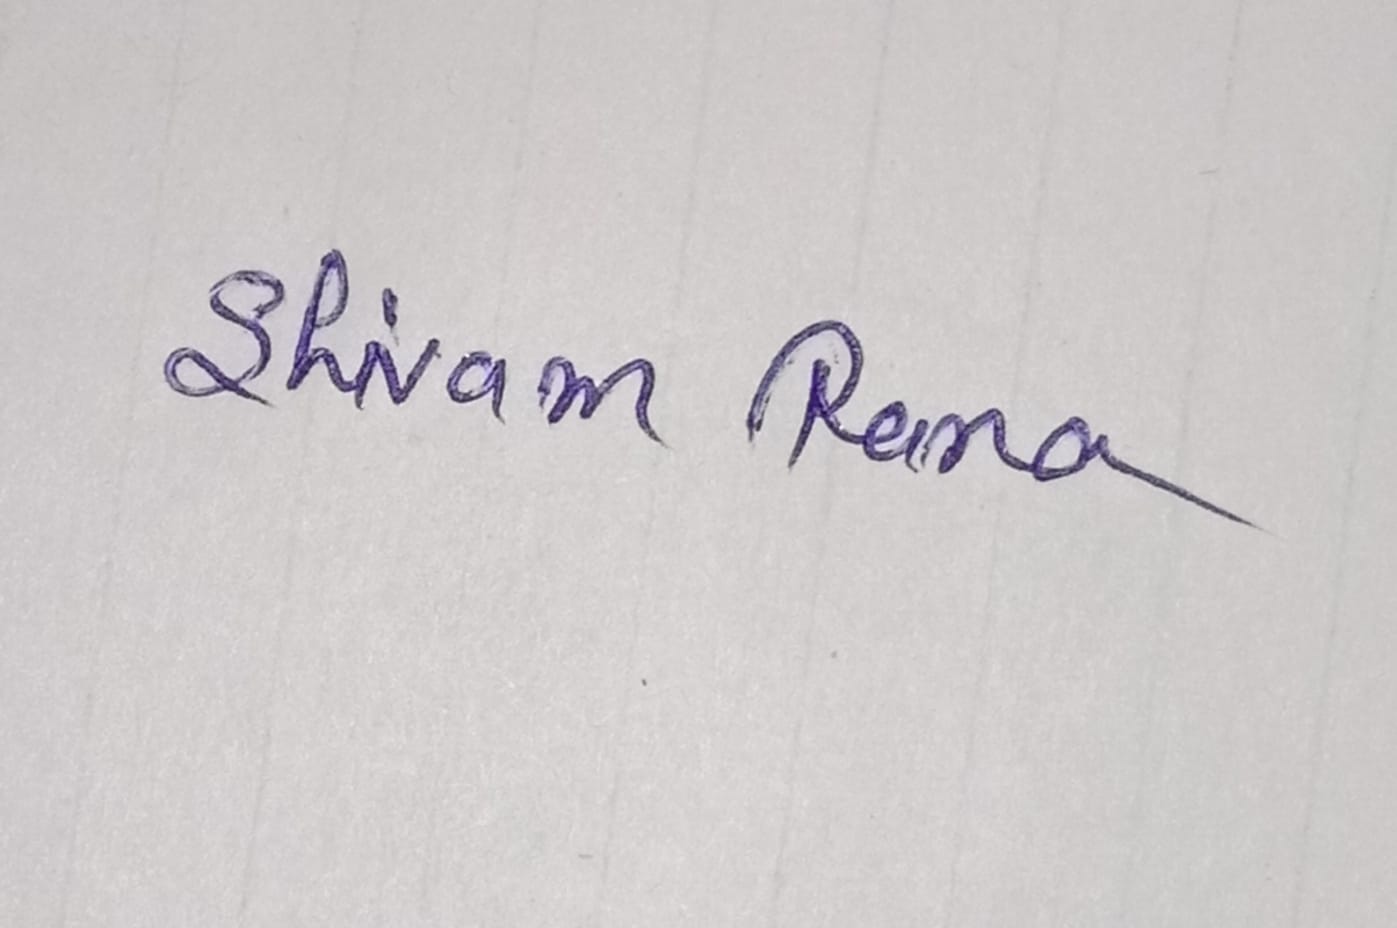 Shivam Rana